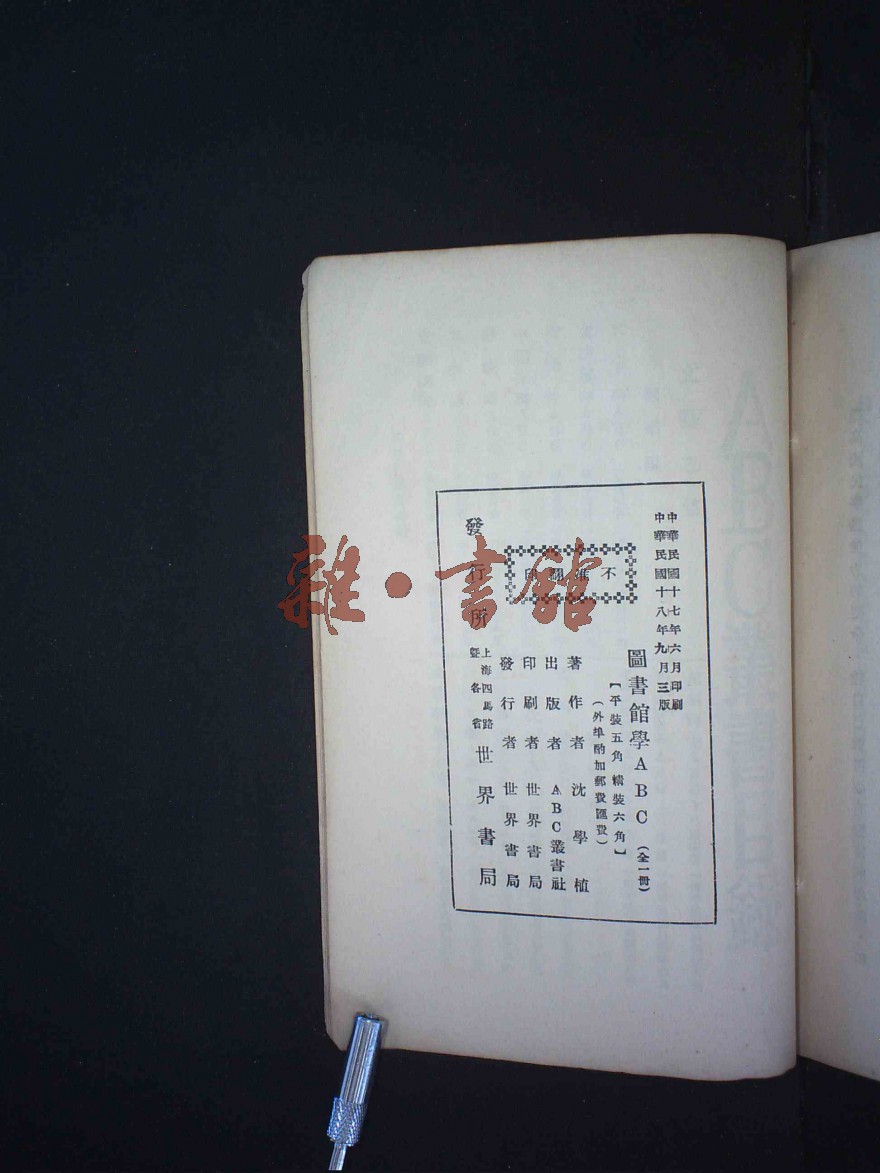 中華民國十七年六月印刷
中華民國十八年九月三版
圖書館學ABC（全一冊）
【平裝五角 精裝六角】
（外埠酌加郵費匯費）
不准翻印
著作者 沈學植
出版者 ABC叢書社
印刷者 世界書局
發行者 世界書局
發行所 上海四馬路暨各省 世界書局
雜·書館